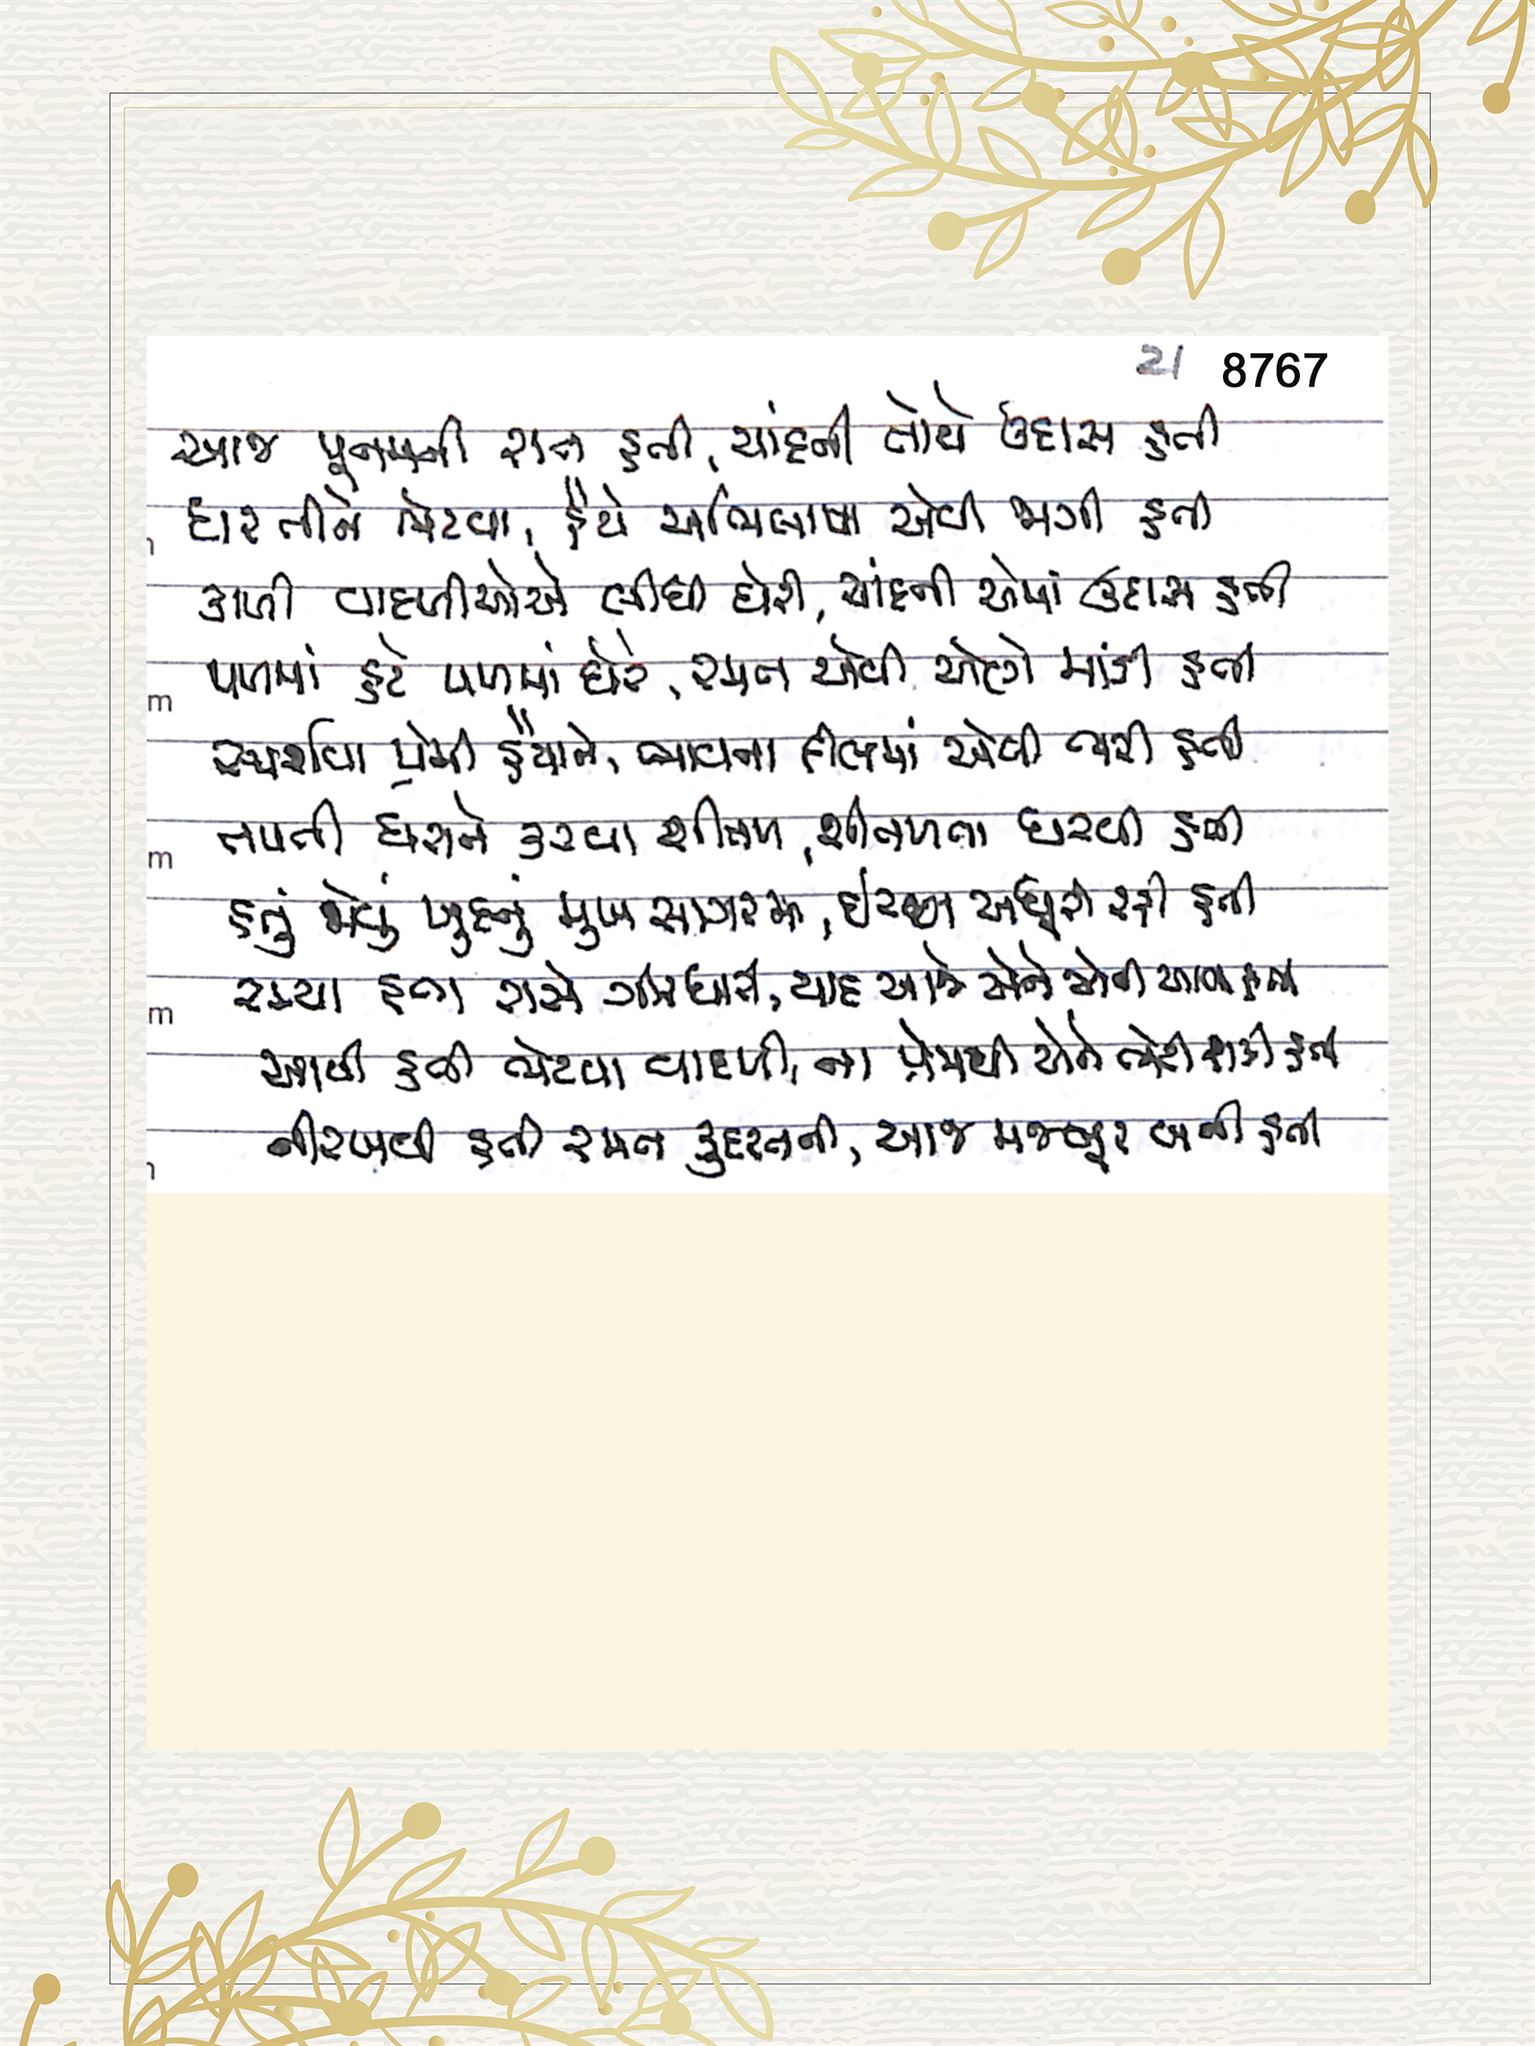 21 8767
આજ પૂનમની રાત હતી, ચાંદની તોયે ઉદાસ હતી
ધરતીને ભેટવા, હૈયે અભિલાષા એવી જાગી હતી
કાળી વાદળીઓએ લીધી ઘેરી, ચાંદની એમાં ઉદાસ હતી
પળમાં હટે પળમાં ઘેરે, રમત એવી એણે માંડી હતી
સ્પર્શવા પ્રેમી હૈયાને, ભાવના દીલમાં એવી ભરી હતી
તપતી ધરાને કરવા શીતળ, શીતળતા ધરવી હતી
હતું જોવું ખુદનું મુખ સાગરમાં, ઈચ્છા અધૂરી રહી હતી
રમ્યા હતા રાસે ગીરધારી, યાદ આજે એને એની આવી હતી
આવી હતી ભેટવા વાદળી, ના પ્રેમથી એને ભેટી શકી હતી
નીરખવી હતી રમત કુદરતની, આજ મજબૂર બની હતી